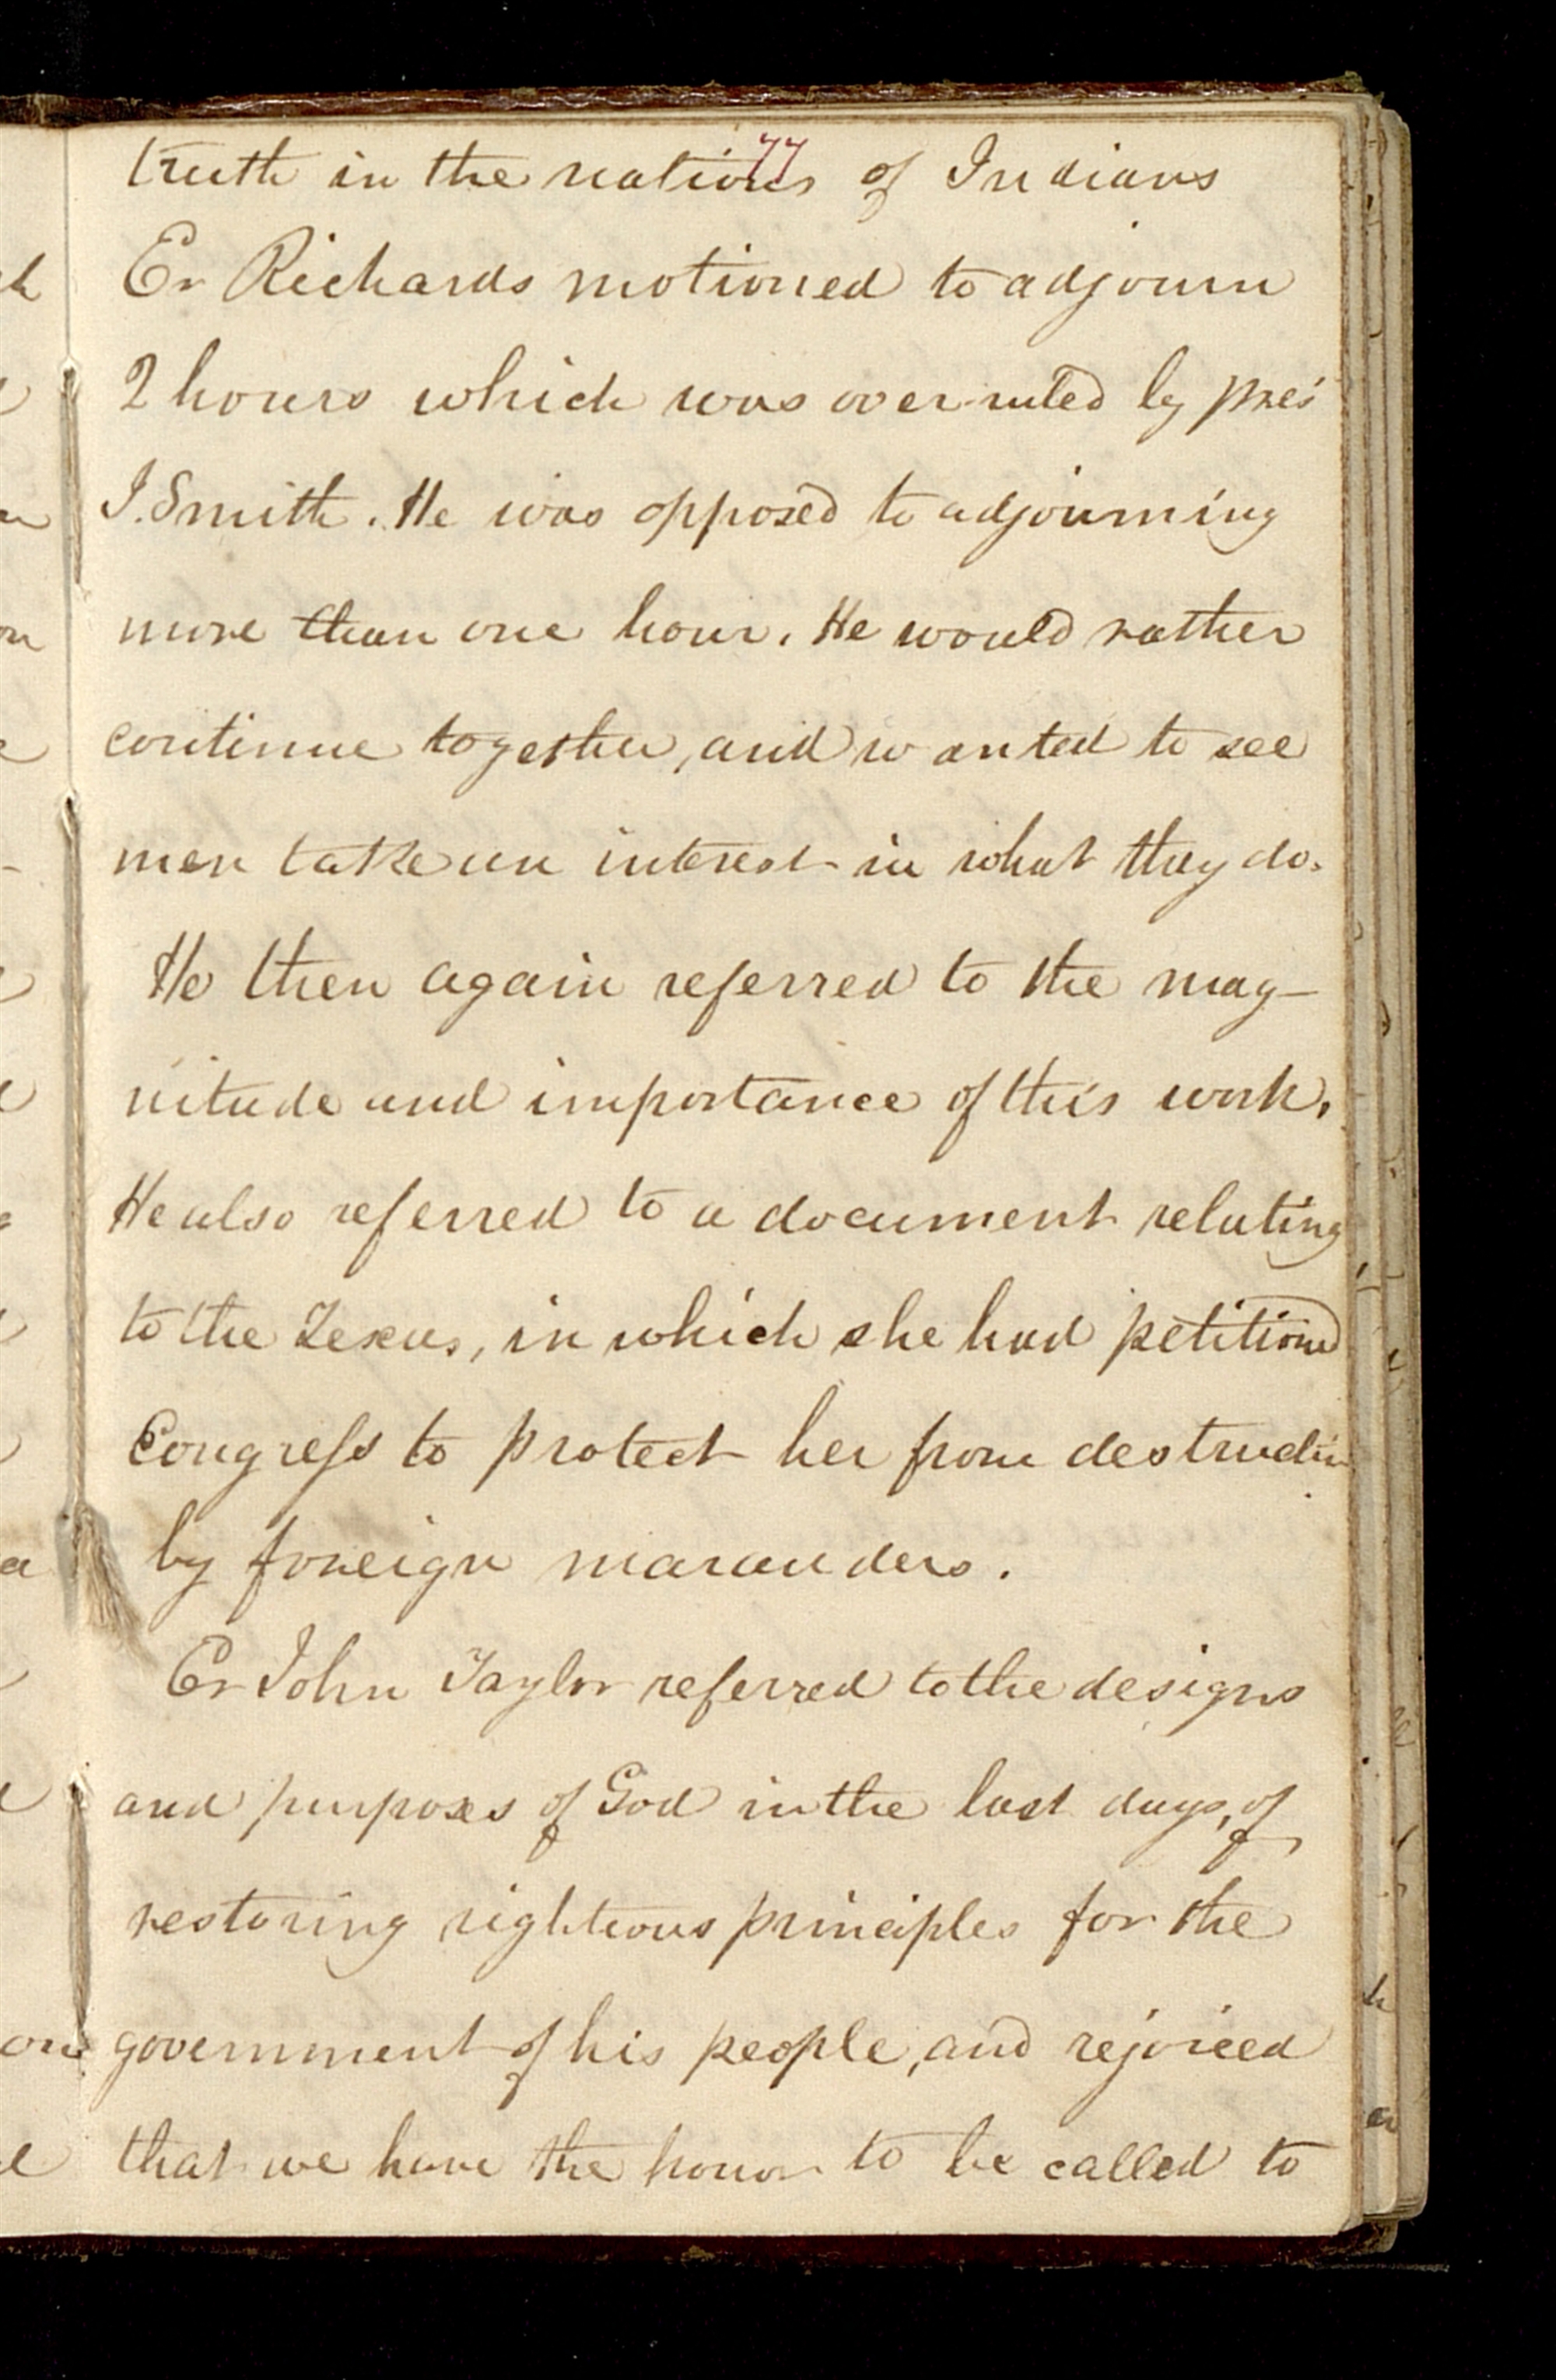 77
truth in the nations of Indians
Er Richards motioned to adjourn
2 hours which was overruled by pres
J. Smith. He was opposed to adjourning
more than one hour. He would rather
continue together, and wanted to see
men take an interest in what they do.
He then again referred to the mag-
nitude and importance of this work.
He also referred to a document relating
to the Texas, in which she had petitioned
Congress to protect her from destruction
by foreign marauders.
Er John Taylor referred to the designs
and purposes of God in the last days, of
restoring righteous principles for the
government of his people, and rejoiced
that we have the honor to be called to